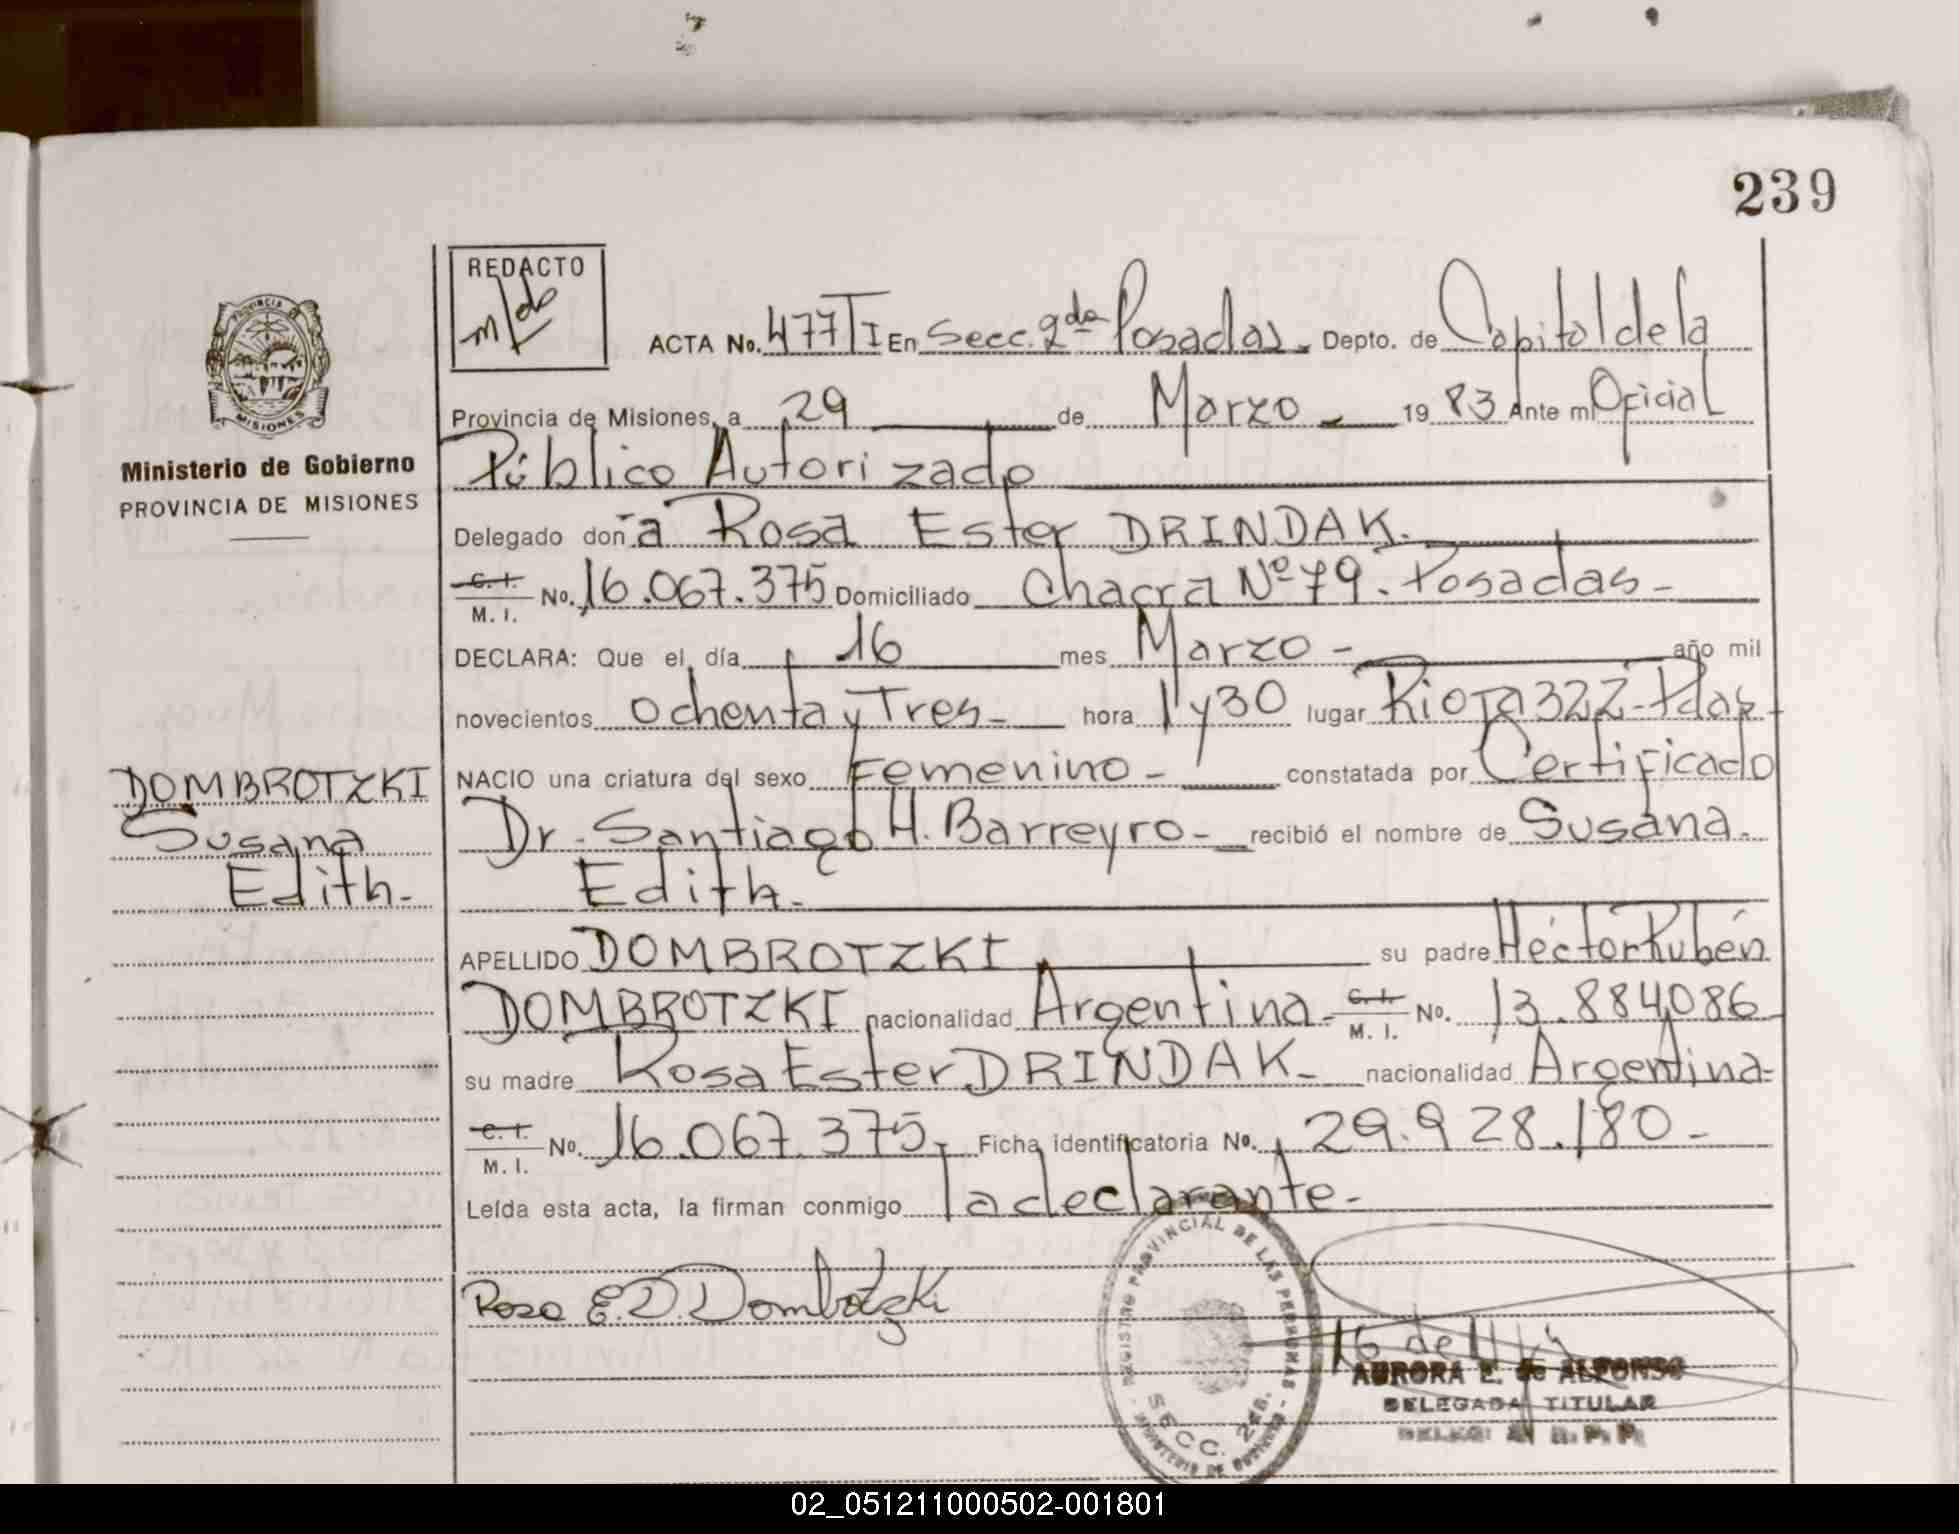 239
REDACTO
PROVINCIA
MISIONES
Ministerio de Gobierno
PROVINCIA DE MISIONES
ACTA No. 477 TI En Secc. 2da Posadas. Depto. de Capital de la
Provincia de Misiones, a 29 de Marzo 1983 Ante mi Oficial
Público Autorizado
Delegado don~a Rosa Ester DRINDAK.
C. I. M. I. No. 16.067.375 Domiciliado Chacra Nº 79. Posadas-
DECLARA: Que el día 16 mes Marzo - año mil
novecientos ochenta y Tres- hora 1 y 30 lugar Rioja 322- Pdas-
NACIO una criatura del sexo Femenino- constatada por Certificado
Dr. Santiago H. Barreyro- recibió el nombre de Susana
Edith.
DOMBROTZKI
Susana
Edith.
APELLIDO DOMBROTZKI su padre Héctor Rubén
DOMBROTZKI nacionalidad Argentina- C. I. M. I. No. 13.884.086
su madre Rosa Ester DRINDAK- nacionalidad Argentina-
C. I. M. I. No. 16.067.375- Ficha identificatoria No. 29.928.180-
Leída esta acta, la firman conmigo la declarante-
Rosa E. D. Dombrotzki
REGISTRO PROVINCIAL DE LAS PERSONAS
SECC. 2da.
MINISTERIO DE GOBIERNO
AURORA E. de ALFONSO
DELEGADA TITULAR
02_051211000502-001801